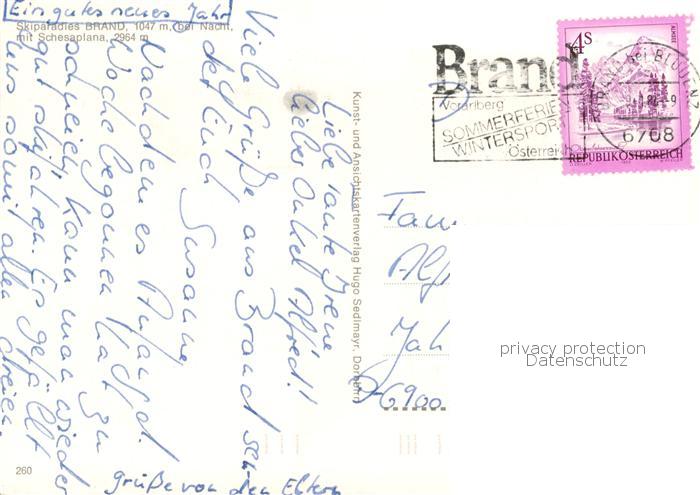 Ein gutes neues Jahr
Skiparadies BRAND, 1047 m, bei Nacht,
mit Schesaplana, 2964 m
Liebe Tante Irene
lieber Onkel Alfred!
Viele Grüße aus Brand sen-
det Euch Susanne
Nachdem es Anfangs
Woche begonnen hat zu
schneien kann man wieder
gut skifahren. Es gefällt
uns somit allen dreien.
grüße von den Eltern
260
Kunst- und Ansichtskartenverlag Hugo Sedlmayr, Dornbirn
Brand
Vorarlberg
SOMMERFERIEN
WINTERSPORT
Österreich
BRAND bei BLUDENZ
6708
4S
ALMSEE
REPUBLIK ÖSTERREICH
Fam
Alf
Jah
D-6900
privacy protection
Datenschutz